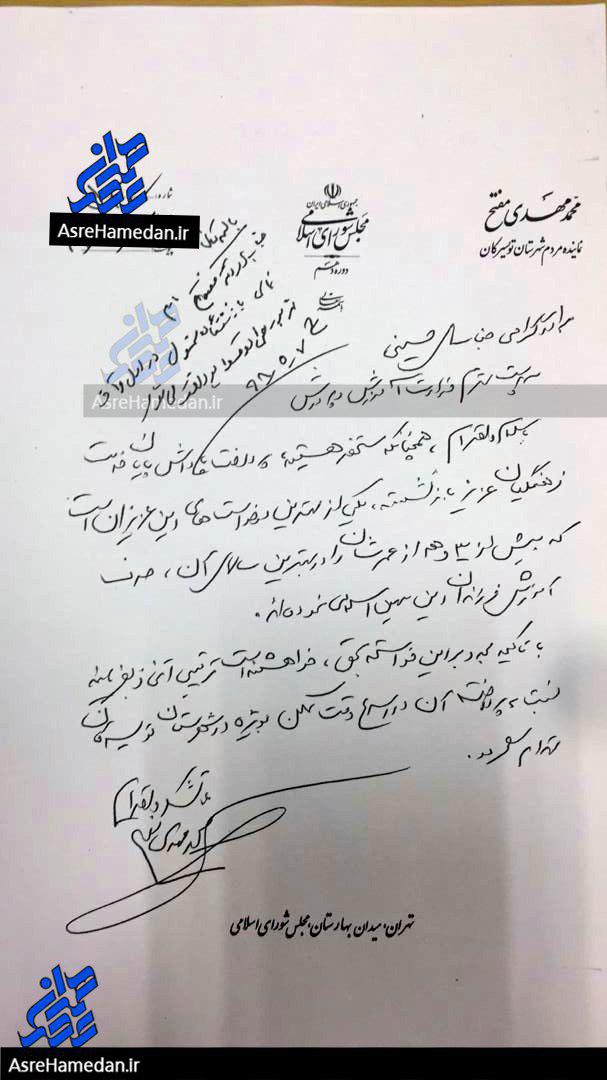 AsreHamedan.ir
محمد مهدی مفتح
نماینده مردم شهرستان تویسرکان
جمهوری اسلامی ایران
مجلس شورای اسلامی
دوره دهم
شماره
۹۸،۵،۷
برادر گرامی جناب آقای حسینی
سرپرست محترم وزارت آموزش و پرورش
AsreHamedan.ir
با سلام و احترام، همچنانکه مستحضر هستید، پرداخت پاداش پایان خدمت
فرهنگیان عزیز بازنشسته، یکی از مهمترین درخواست های این عزیزان است
که بیش از ۳ دهه از عمرشان را در بهترین سالهای آن، صرف
آموزش فرزندان این میهن اسلامی نموده‌اند.
با تاکید مجدد بر این خواسته بحق، خواهشمند است ترتیبی اتخاذ بفرمایید
نسبت به پرداخت آن در اسرع وقت ممکن بویژه در شهرستان تویسرکان
اقدام شود.
با تشکر و احترام
محمد مهدی مفتح
تهران، میدان بهارستان، مجلس شورای اسلامی
AsreHamedan.ir